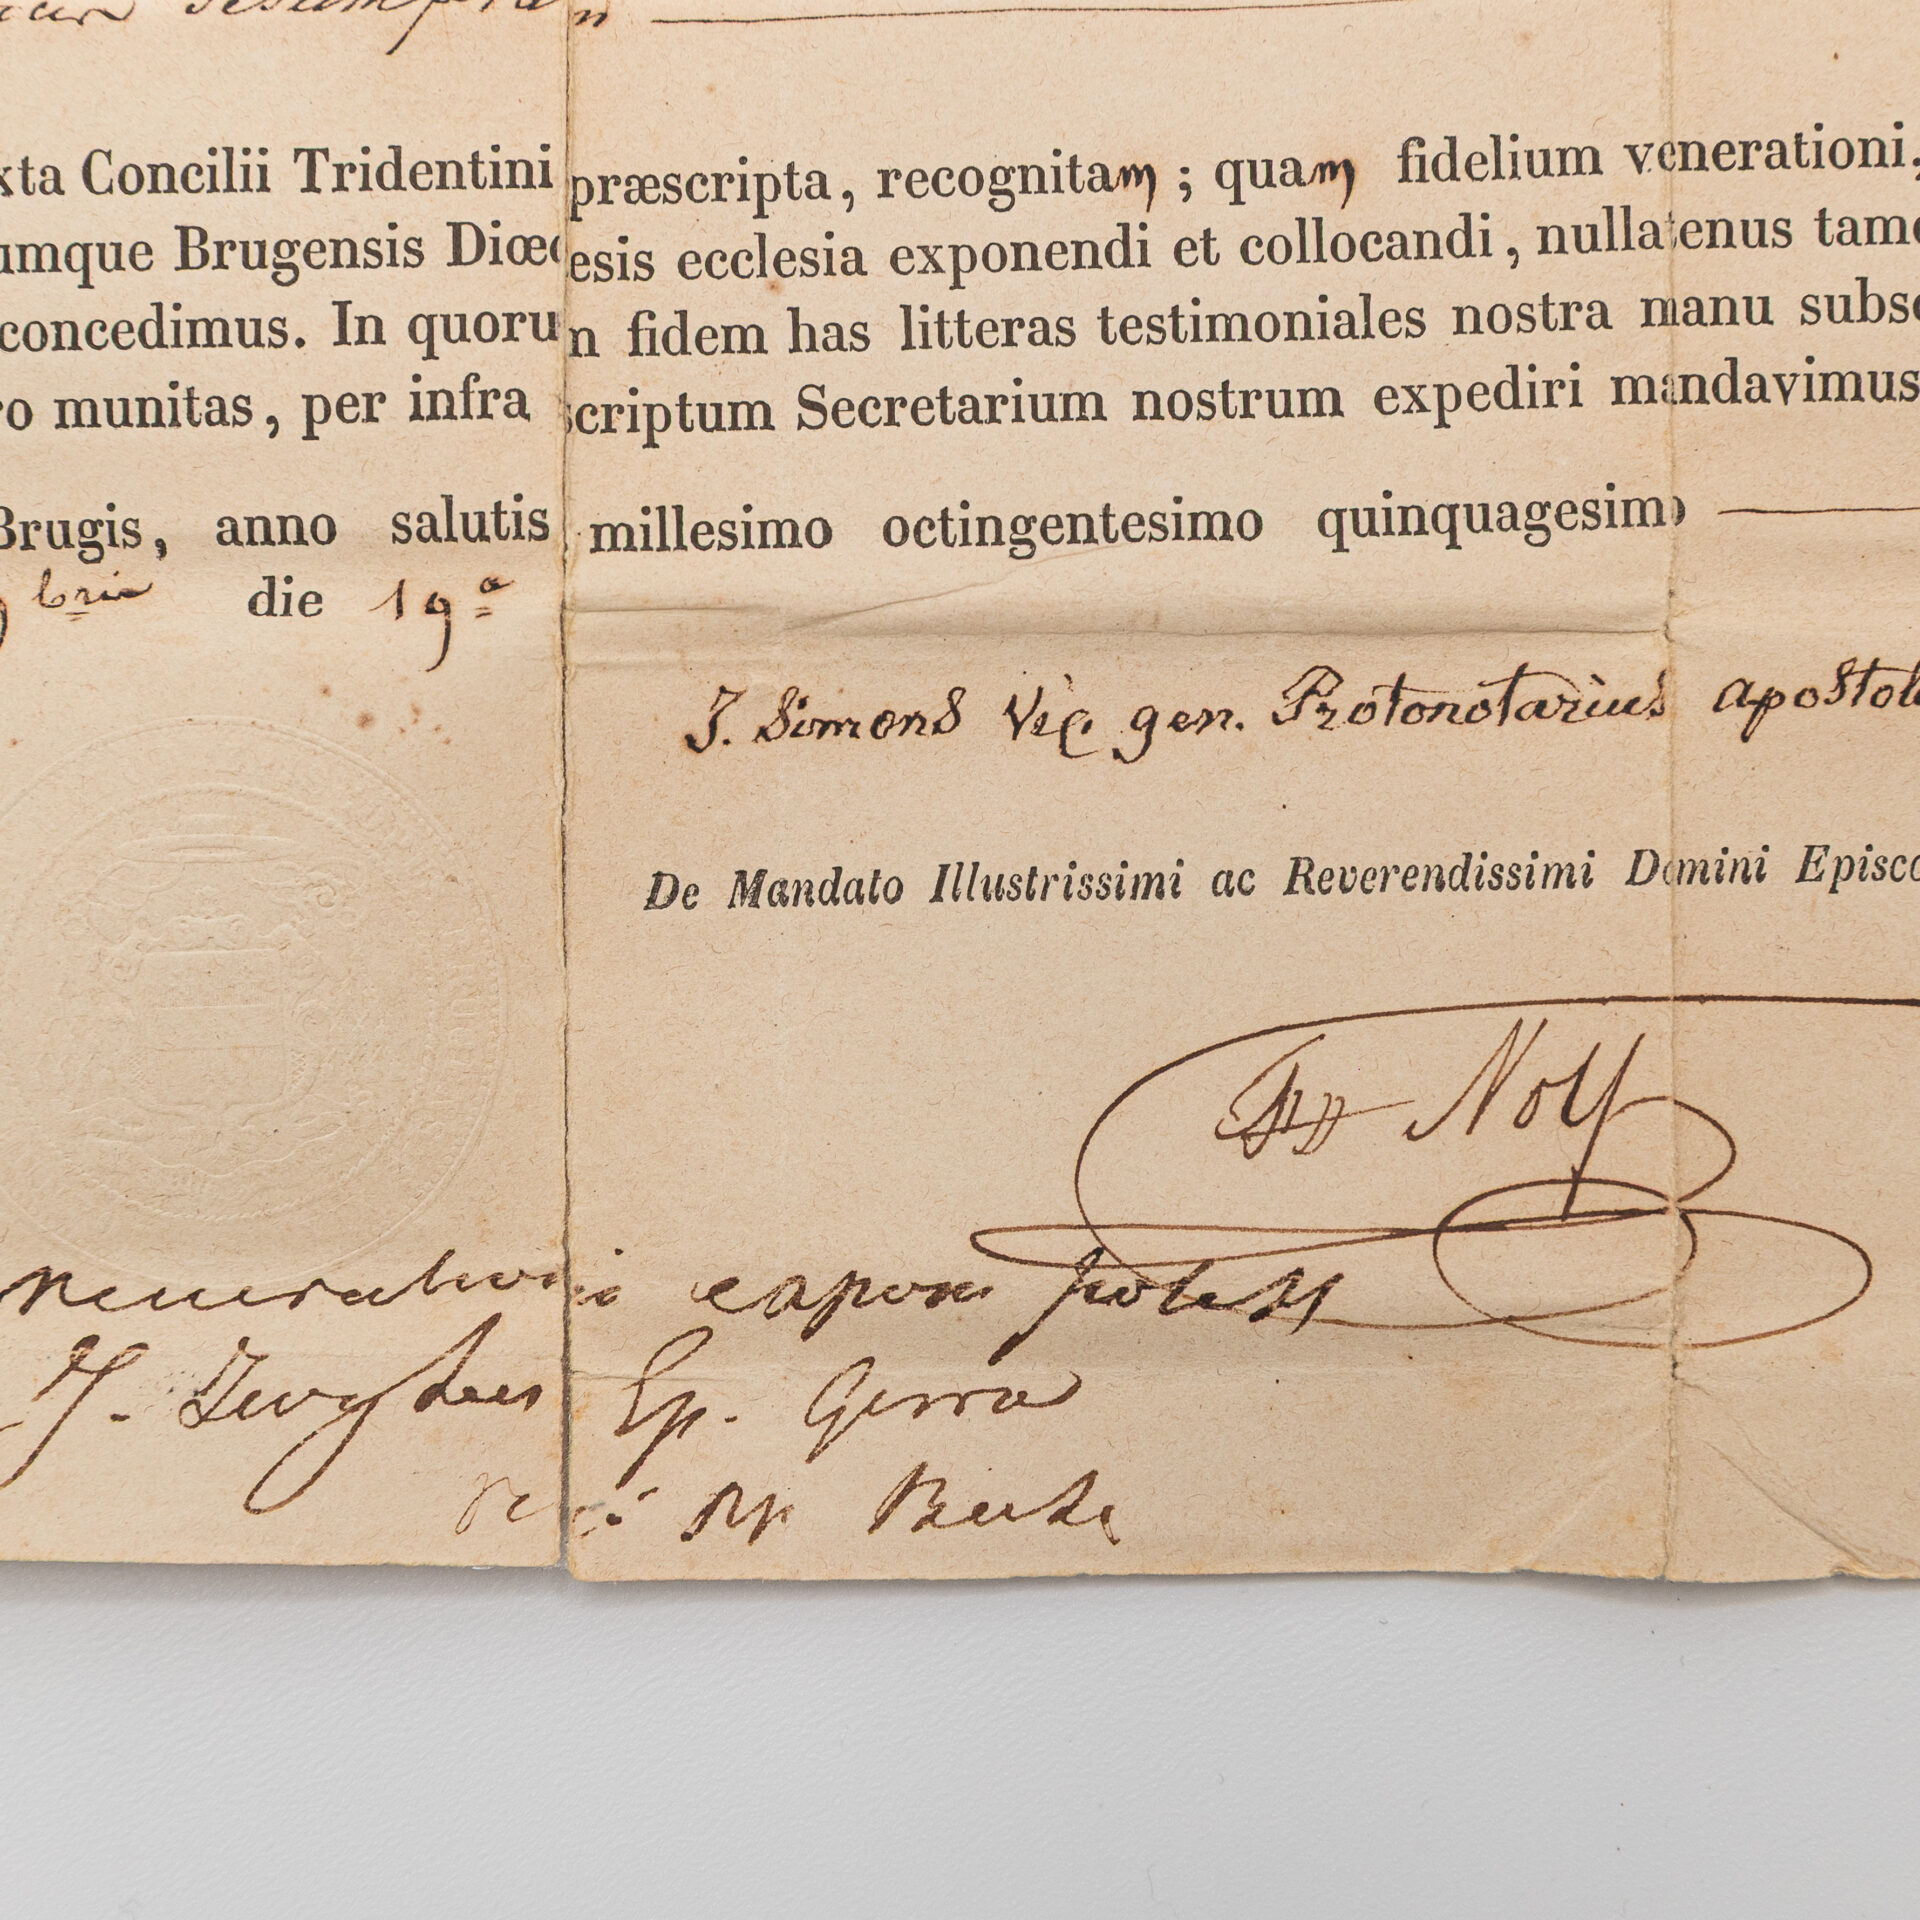 desumptam
xta Concilii Tridentini præscripta, recognitam ; quam fidelium venerationi,
umque Brugensis Diœcesis ecclesia exponendi et collocandi, nullatenus tame
concedimus. In quorum fidem has litteras testimoniales nostra manu subsc
ro munitas, per infra scriptum Secretarium nostrum expediri mandavimus
Brugis, anno salutis millesimo octingentesimo quinquagesimo
bris die 19ª
J. Simons Vic gen. Protonotarius apostol
De Mandato Illustrissimi ac Reverendissimi Domini Episco
Noly
venerationi exponi potest
Ep.